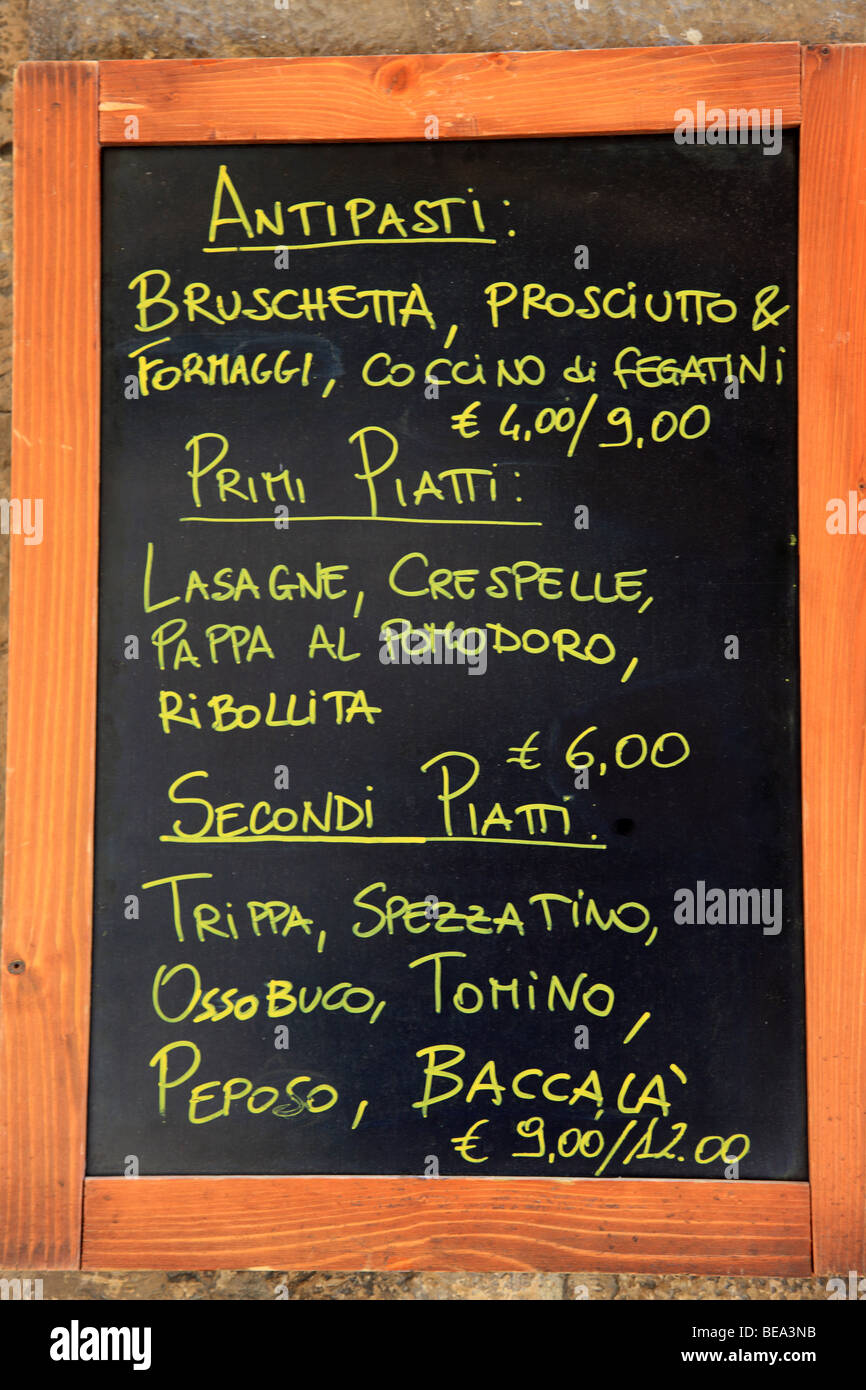 ANTIPASTI:
BRUSCHETTA, PROSCIUTTO &
FORMAGGI, COCCINO di FEGATINI
€ 4,00/9,00
PRIMI PIATTI:
LASAGNE, CRESPELLE,
PAPPA AL POMODORO,
RIBOLLITA
€ 6,00
SECONDI PIATTI.
TRIPPA, SPEZZATINO,
OSSOBUCO, TOMINO,
PEPOSO, BACCALÀ
€ 9,00/12.00
alamy
Image ID: BEA3NB
www.alamy.com